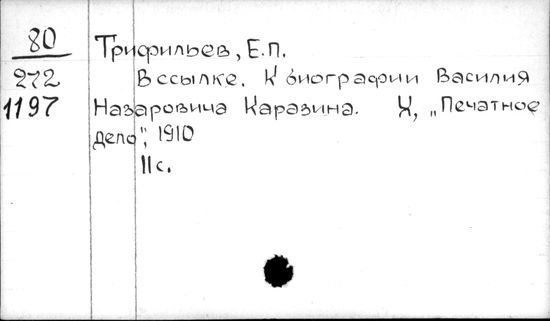 80
Трифильев, Е.П.
272
В ссылке. К биографии Василия
1197
Назаровича Каразина. Х, „Печатное
дело", 1910
11с.